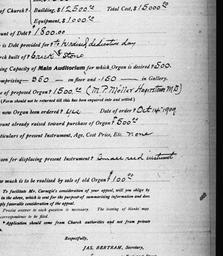 of Church? Building, $12500 00 Total Cost, $15000 00
Equipment, $1000 00
nount of Debt? 1800.00
is Debt provided for? To be raised dedication day
urch built of? brick & stone
ing Capacity of Main Auditorium for which Organ is desired? 500.
omprising— 350 — on floor and 150 — in Gallery.
e of proposed Organ? 1500.00 (M. P. Möller Hagerstown Md)
(Form should not be returned till this has been enquired into and settled.)
new Organ been ordered? Yes Date of order? Oct 14 1909
ount already raised toward purchase of Organ? $500 00
rticulars of present Instrument, Age, Cost Price, Etc. None
son for displacing present Instrument?
w much is to be realized by sale of old Organ? $100 00
To facilitate Mr. Carnegie's consideration of your appeal, will you oblige by
in the above, which is use for the purpose of summarizing information and
rably towards consideration of the appeal.
Precise answer to each question is necessary. The issuing of blanks may
orrespondence to be filed.
* Application should come from Church authorities and not from private
Respectfully,
JAS. BERTRAM, Secretary,